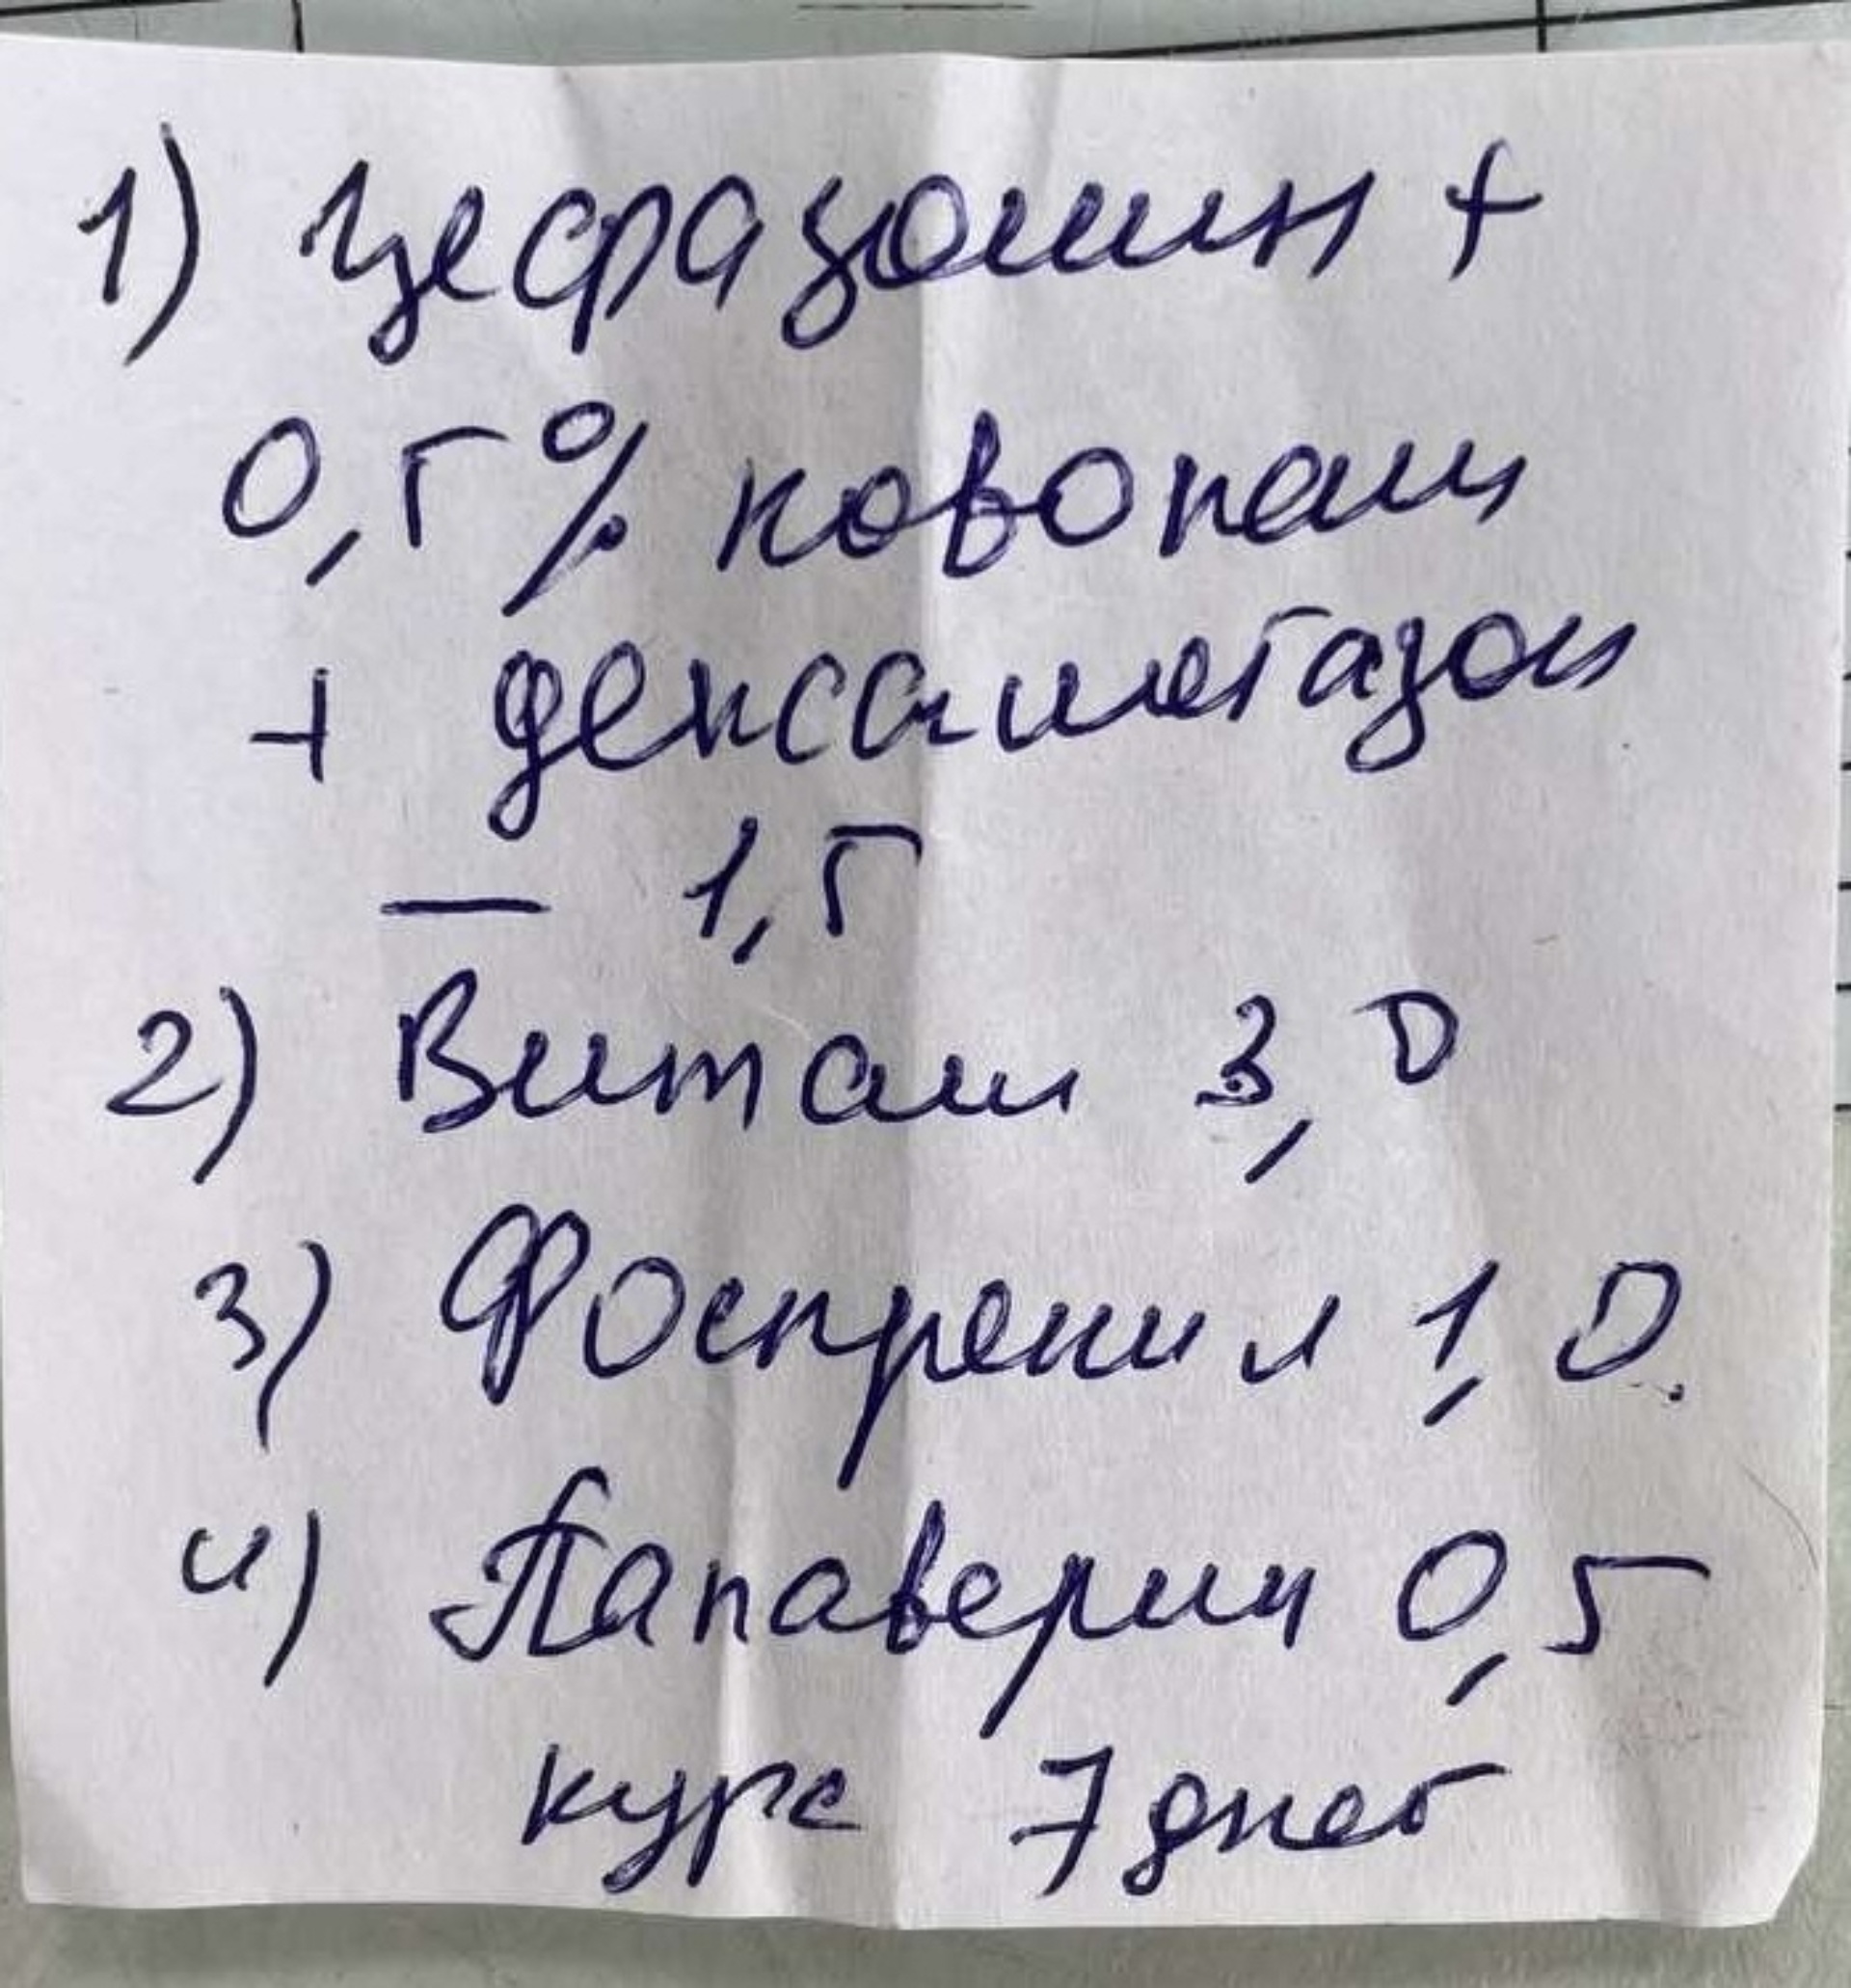 1) Цефазолин +
0,5% новокаин
+ дексаметазон
— 1,5
2) Витам 3,0
3) Фоспренил 1,0.
4) Папаверин 0,5
курс 7 дней